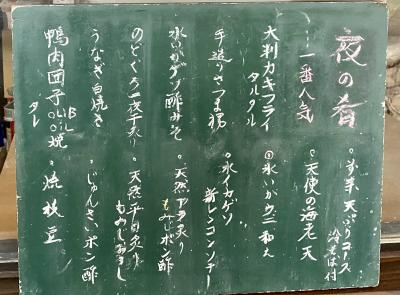 夜の肴
…一番人気
大判カキフライ
タルタル
手造りさつま揚
水いかゲソ酢みそ
のどぐろ一夜干炙り
うなぎ白焼き
鴨肉団子
焼
タレ
◦ 天ぷらコース
冷そば付
◦ 天使の海老天
◦ 水いかウニ和え
◦ 水イカゲソ
新レンコンソテー
◦ 天然アラ炙り
もみじポン酢
◦ 天然平目炙り
もみじおろし
◦ じゅんさいポン酢
◦ 焼枝豆